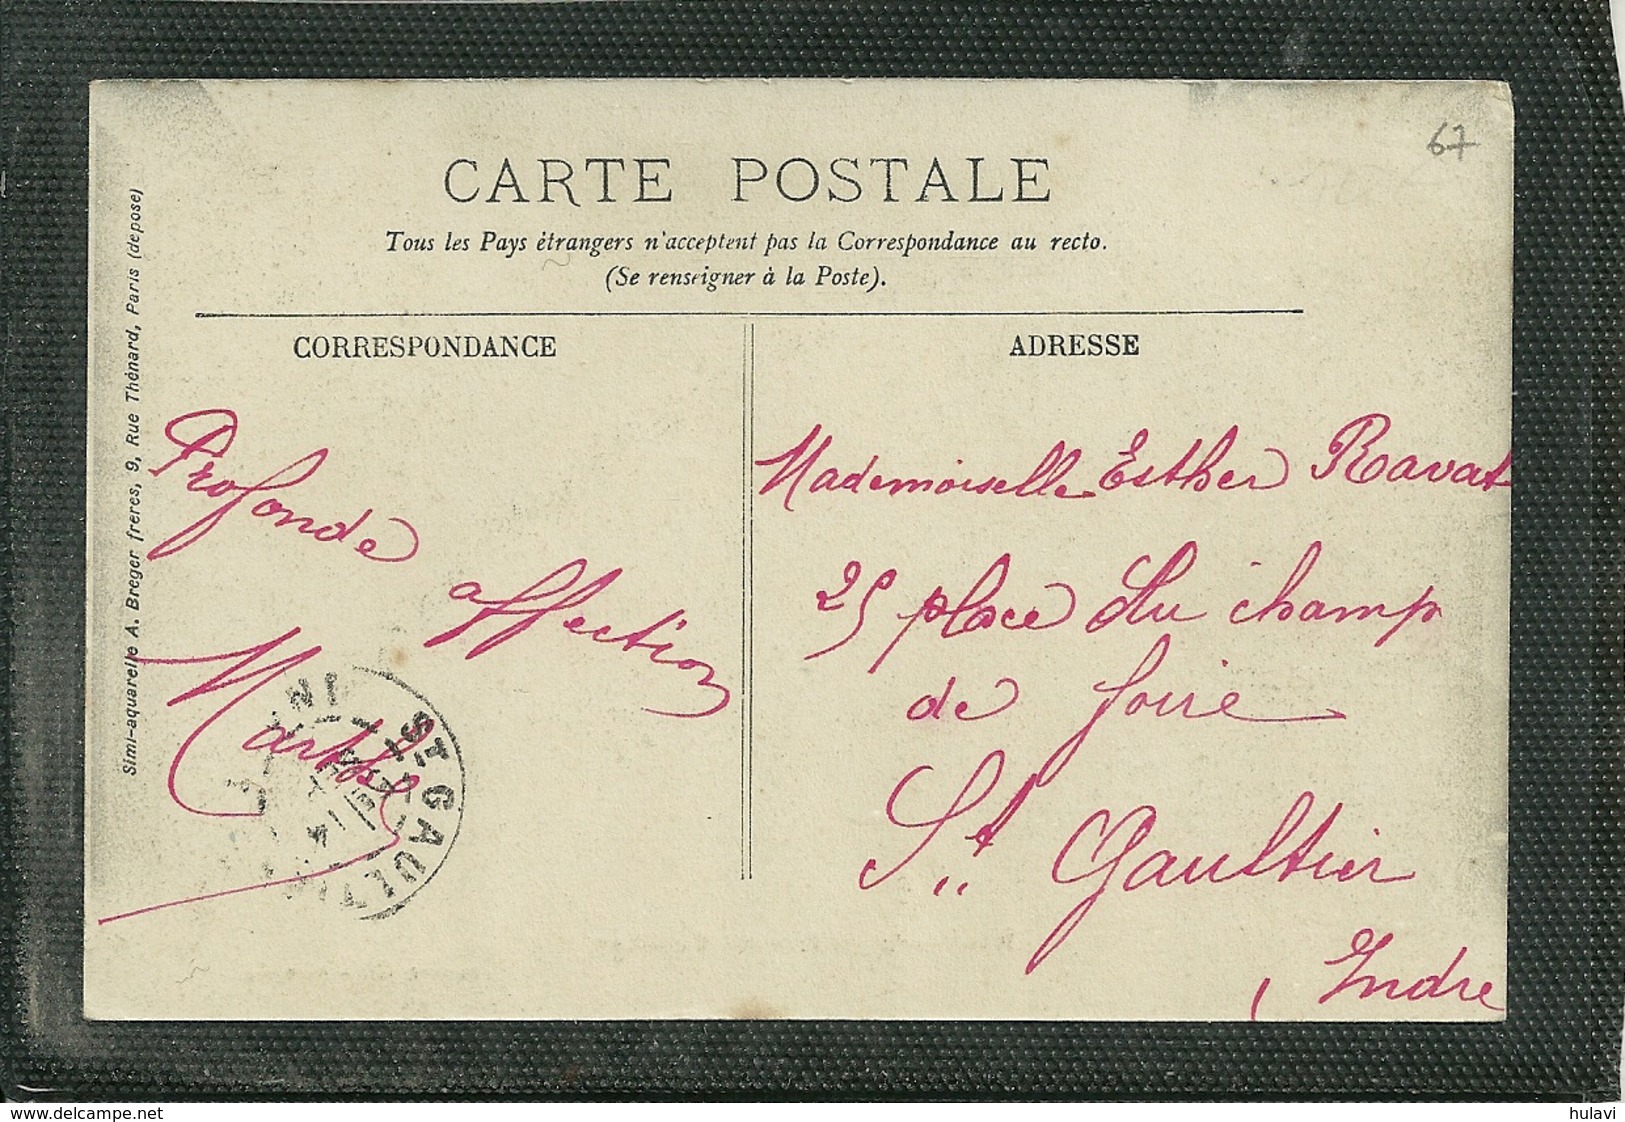 67
CARTE POSTALE
Tous les Pays étrangers n'acceptent pas la Correspondance au recto.
(Se renseigner à la Poste).
CORRESPONDANCE
ADRESSE
Simi-aquarelle A. Breger freres, 9, Rue Thénard, Paris (depose)
Profonde
affection
Marthe
Mademoiselle Esther Ravat
25 place du champ
de foire
St Gaultier
Indre
ST GAULTIER
delcampe.net
hulavi